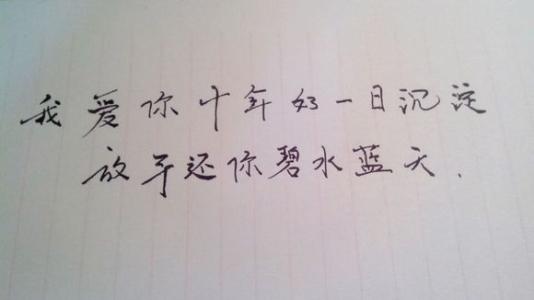 我爱你十年好一日沉淀
放手还你碧水蓝天.